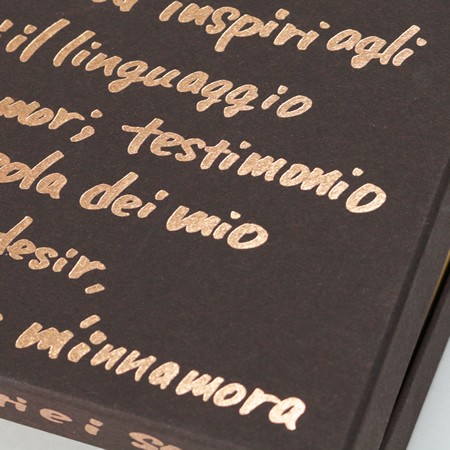 inspiri agli
il linguaggio
mor; testimonio
ola dei mio
desir,
m'innamora
e i